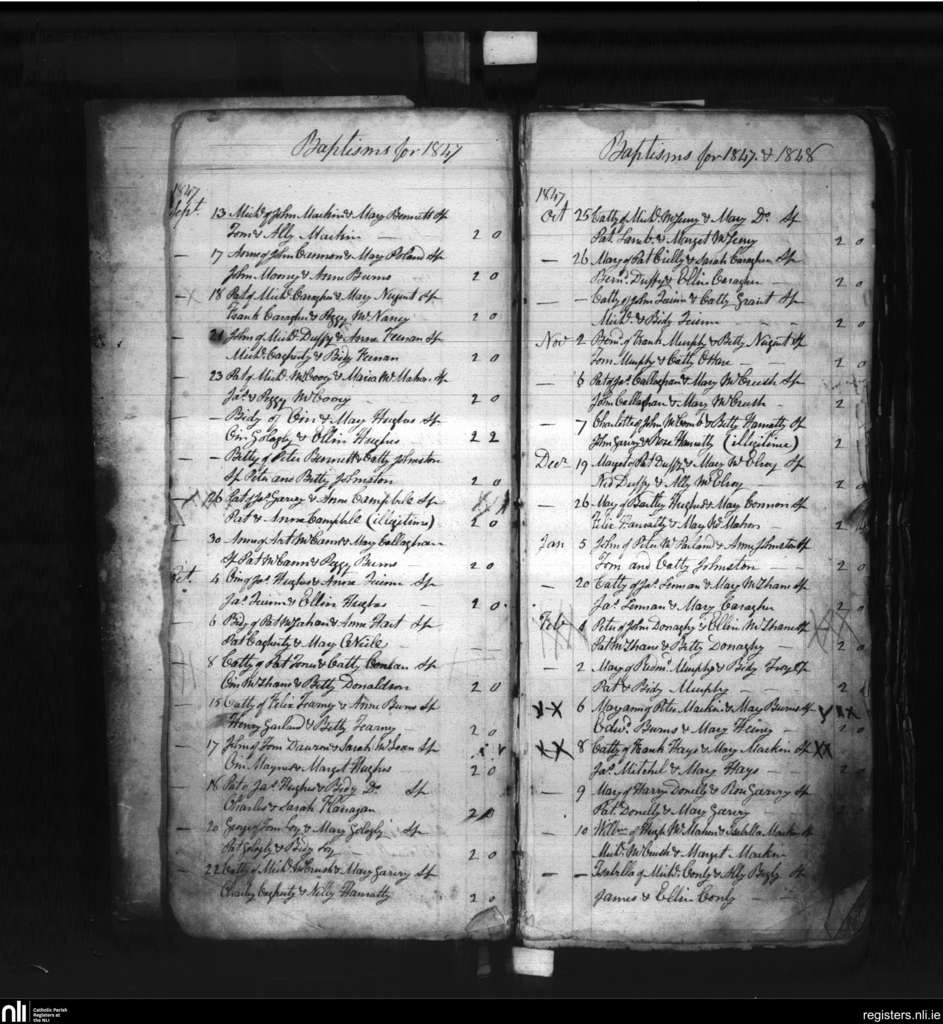 Baptisms for 1847
1847
Sept. 13 Michl. of John Mackin & Mary Bennett Sp
Tom & Ally Mackin — 2 0
— 17 Anne of John Cunnon & Mary Boland Sp
John Mooney & Anne Burns 2 0
— 18 Pat of Michl. Caragher & Mary Nugent Sp
Frank Caragher & Peggy McNancy 2 0
— 21 John of Michl. Duffy & Anne Keenan Sp
Michl. Cagherty & Bidy Keenan 2 0
— 23 Pat of Michl. McCooy & Maria McMahon Sp
Jas. & Peggy McCooy — 2 0
— — Bidy of Om & Mary Hughes Sp
Om Gologly & Ellin Hughes 2 2
— — Betty of Peter Bennett & Catty Johnston
Sp Peter and Betty Johnston 2 0
26 Pat of Jas. Garvey & Anne Camphile Sp
Pat & Anne Camphile (illigitime) 2 0
— 30 Anne of Art McCann & Mary Callaghan
Sp Pat McCann & Peggy Burns — 2 0
Oct. 4 Om of Jas. Hughes & Anne Quinn Sp
Jas. Quinn & Ellin Hughes — 2 0
— 6 Bidy of Pat McMahon & Anne Hart Sp
Pat Cagherty & Mary O'Neile — —
— 8 Catty of Pat & Catty Conlan Sp
Om McShane & Betty Donaldson 2 0
— 15 Catty of Felix Fearny & Anne Burns Sp
Henry Garland & Betty Fearny — 2 0
— 17 John of Tom & Sarah Sp
Om Magnus & Marget Hughes — 2 0
— 18 Pat of Jas. Hughes & Bidy Do. Sp
Charles & Sarah Flanagan 2 0
— 20 George of Tom Foy & Mary Gologly Sp
Pat Gologly & Bidy Foy — 2 0
— 22 Catty of Michl. McCrush & Mary Garvey Sp
Charley Cagherty & Nelly Hanratty 2 0
Baptisms for 1847. & 1848
1847
Oct 25 Catty of Michl. & Mary Do. Sp
Pat. Lamb & Marget 2 0
— 26 Mary of Pat & Sarah Caragher Sp
Bernd. Duffy & Ellin Caragher — 2 0
— — Catty of John Quinn & Catty Grant Sp
Michl. & Bidy Quinn — 2 0
Nov 2 Bernd. of Frank Murphy & Betty Nugent Sp
Tom Murphy & Catty O'Hare 2 0
— 6 Pat of Jas. Callaghan & Mary McCrush Sp
John Callaghan & Mary McCrush — 2
— 7 Charlotte of John McComb & Betty Hanratty Sp
John Garvey & Rose Hanratty (illigitime) 2
Decr. 19 Marget of Pat Duffy & Mary McElroy Sp
Ned Duffy & Ally McElroy — 2 0
— 26 Mary of Bartley Hughes & Mary Connon Sp
Felix Hanratty & Mary McMahon — 2
Jan 5 John of Peter McParland & Anne Johnston Sp
Tom and Catty Johnston — 2 0
— 20 Catty of Jas. Lennan & Mary McShane Sp
Jas. Lennan & Mary Caragher 2 0
Feb 1 Peter of John Donaghy & Ellin McShane Sp
Pat McShane & Betty Donaghy — 2 0
— 2 Mary of Redmd. Murphy & Bidy Sp
Pat & Bidy Murphy — — 2
6 Maryanne of Peter Mackin & Mary Burns Sp
Edwd. Burns & Mary 2 0
8 Catty of Frank Hays & Mary Mackin Sp
Jas. Mitchel & Mary Hays — — 2 0
— 9 Mary of Harry Donelly & Rose Garvey Sp
Pat. Donelly & Mary Garvey 2
— 10 Willm. of Hugh McMahon & Isabella Mackin Sp
Michl. McCrush & Marget Mackin
— — Isabella of Michl. Conly & Ally Sp
James & Ellin Conly — —
nli
Catholic Parish
Registers at
the NLI
registers.nli.ie